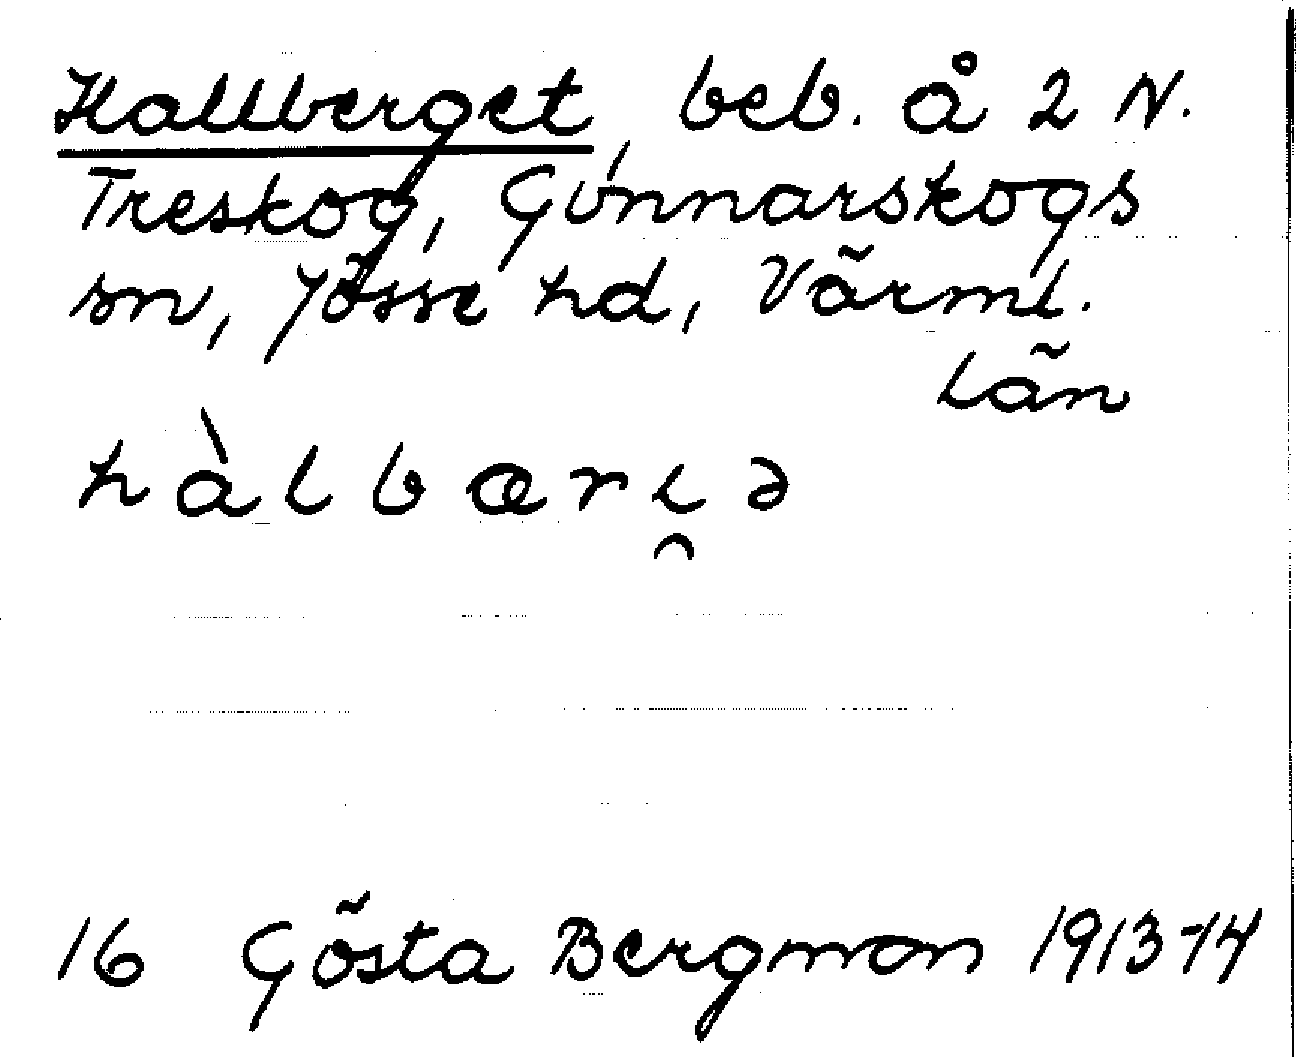 Hallberget, beb. å 2 N.
Treskog, Gunnarskogs
sn, Jösse hd, Värml.
län
hàlbæri̯ə
16 Gösta Bergman 1913-14